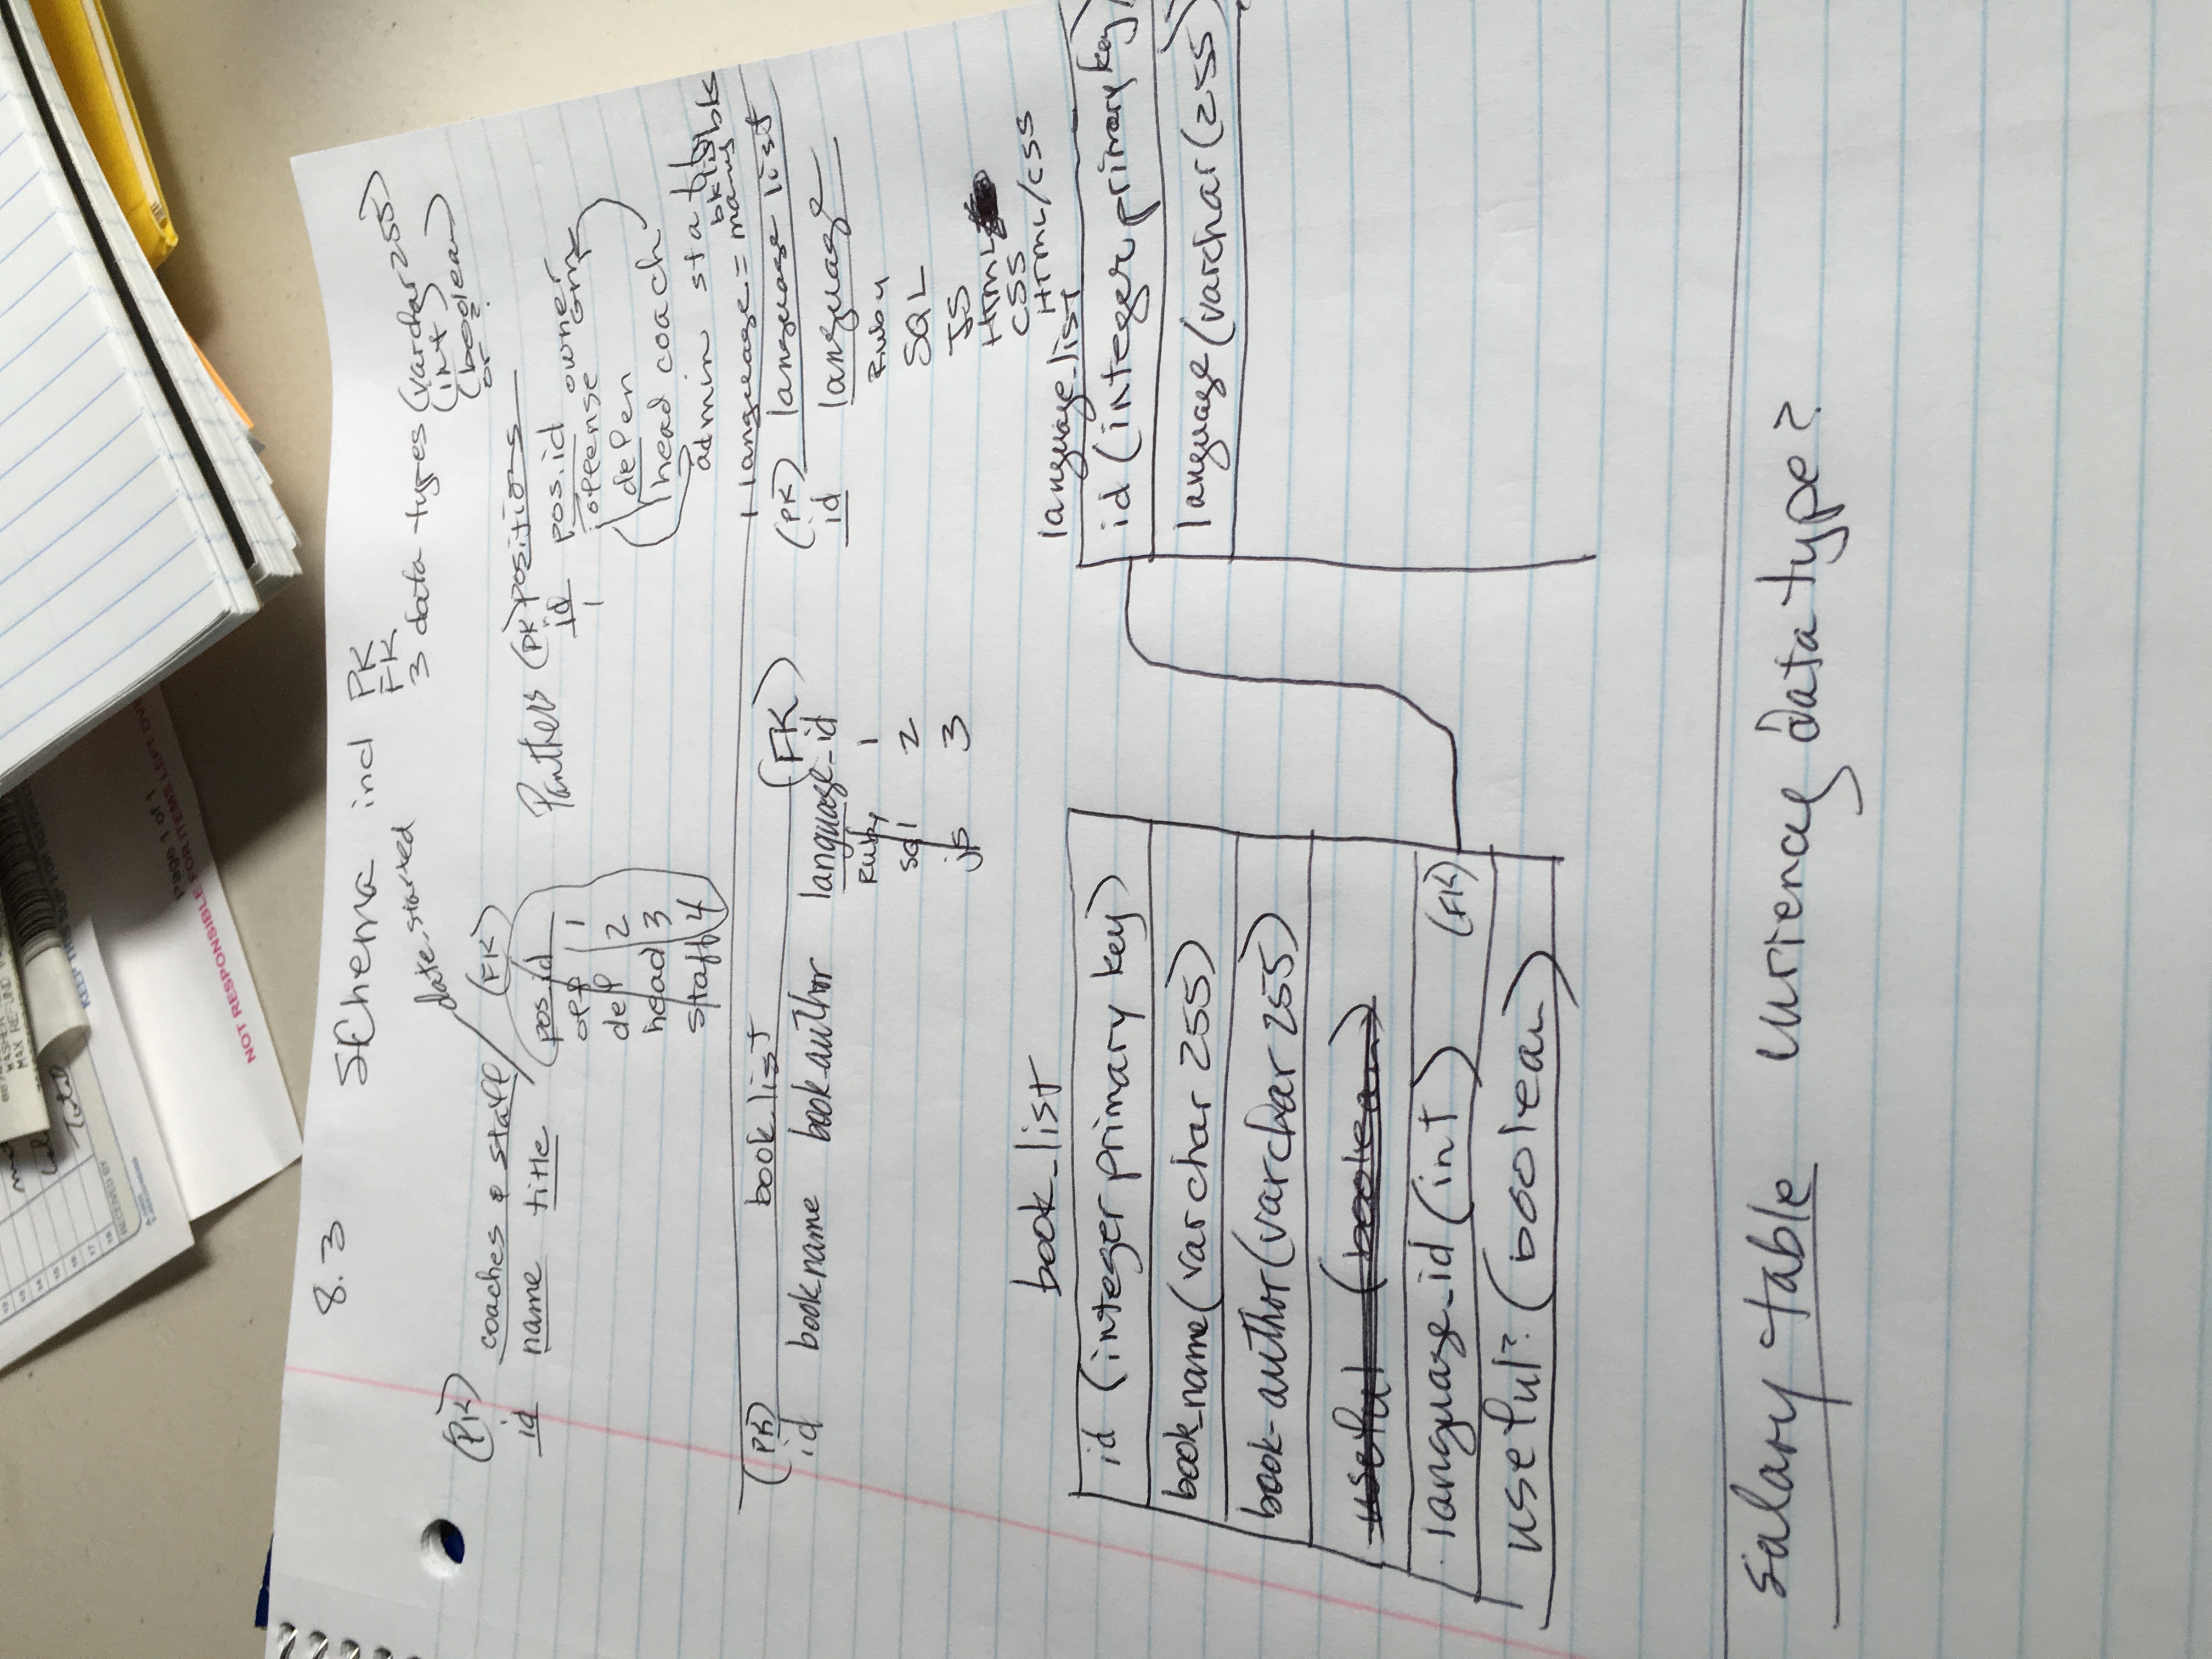 12
13
14
15
16
17
18
Total
RECEIVED BY
WASHER
MAX REFUND
KEEP THIS SLIP FOR
Page 1 of 1
NOT RESPONSIBLE FOR ITEMS LEFT OV
8.3 SChema incl PK
FK
3 data types (varchar 255)
(int)
(boolean)
or ?
date_started
(PK) coaches & staff (FK)
id name title pos.id
off 1
def 2
head 3
staff 4
Panthers (PK) positions
id pos.id
1 offense owner GM
defen
head coach
admin staff
1 language = many bks
(PK) book_list (FK)
id book_name book_author language_id
Ruby 1
sql 2
js 3
(PK) language list
id language
Ruby
SQL
JS
HTML
CSS
HTML/CSS
book_list
id (integer primary key)
book_name (varchar 255)
book-author (varchar 255)
useful (boolean)
language_id (int) (FK)
useful? (boolean)
language_list
id (integer primary key)
language (varchar (255)
salary table currency data type?